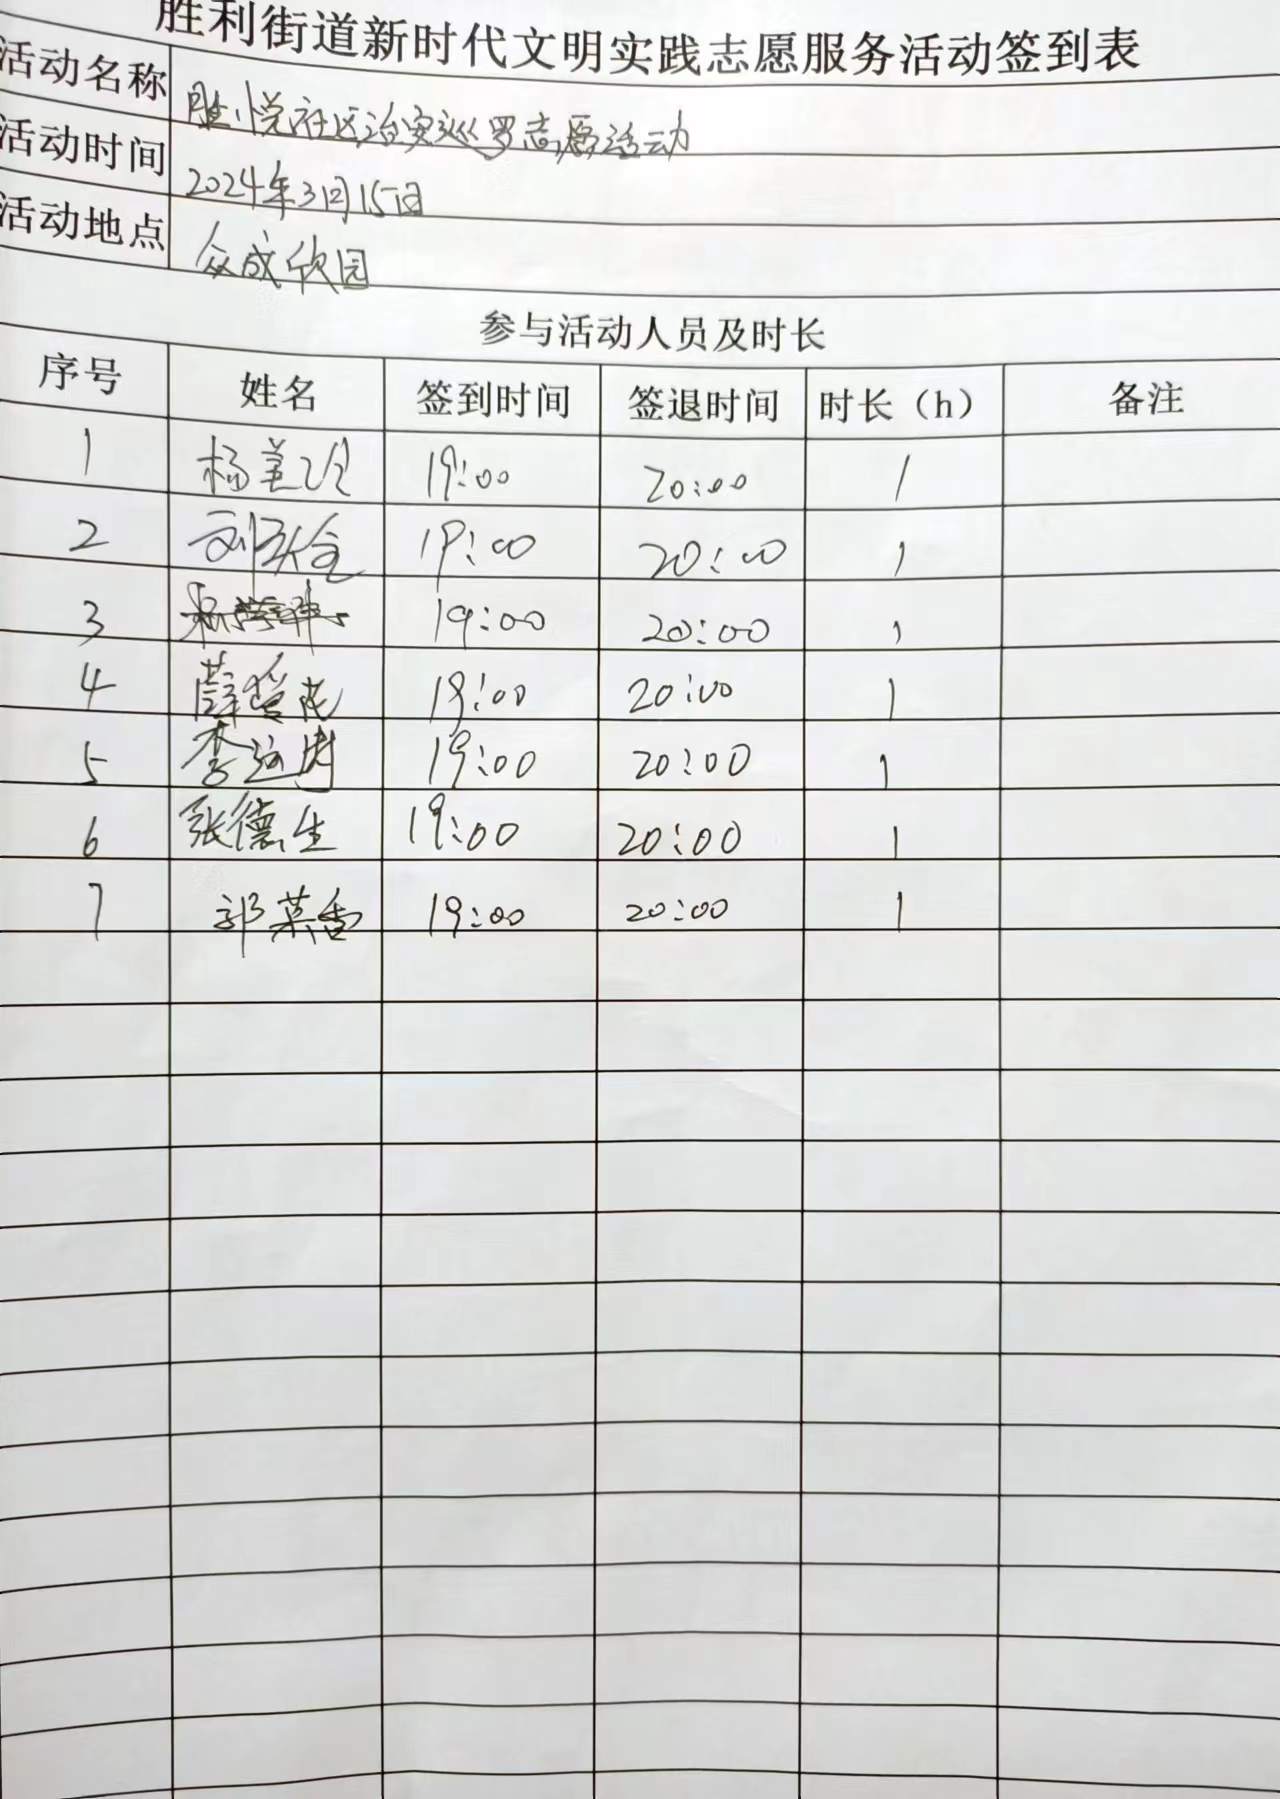 胜利街道新时代文明实践志愿服务活动签到表
活动名称 胜悦社区治安巡罗志愿活动
活动时间 2024年3月15日
活动地点 众成欣园
参与活动人员及时长
序号 姓名 签到时间 签退时间 时长（h） 备注
1 杨美玲 19:00 20:00 1
2 刘 19:00 20:00 1
3 19:00 20:00 1
4 薛 19:00 20:00 1
5 李 19:00 20:00 1
6 张德生 19:00 20:00 1
7 郭菜香 19:00 20:00 1